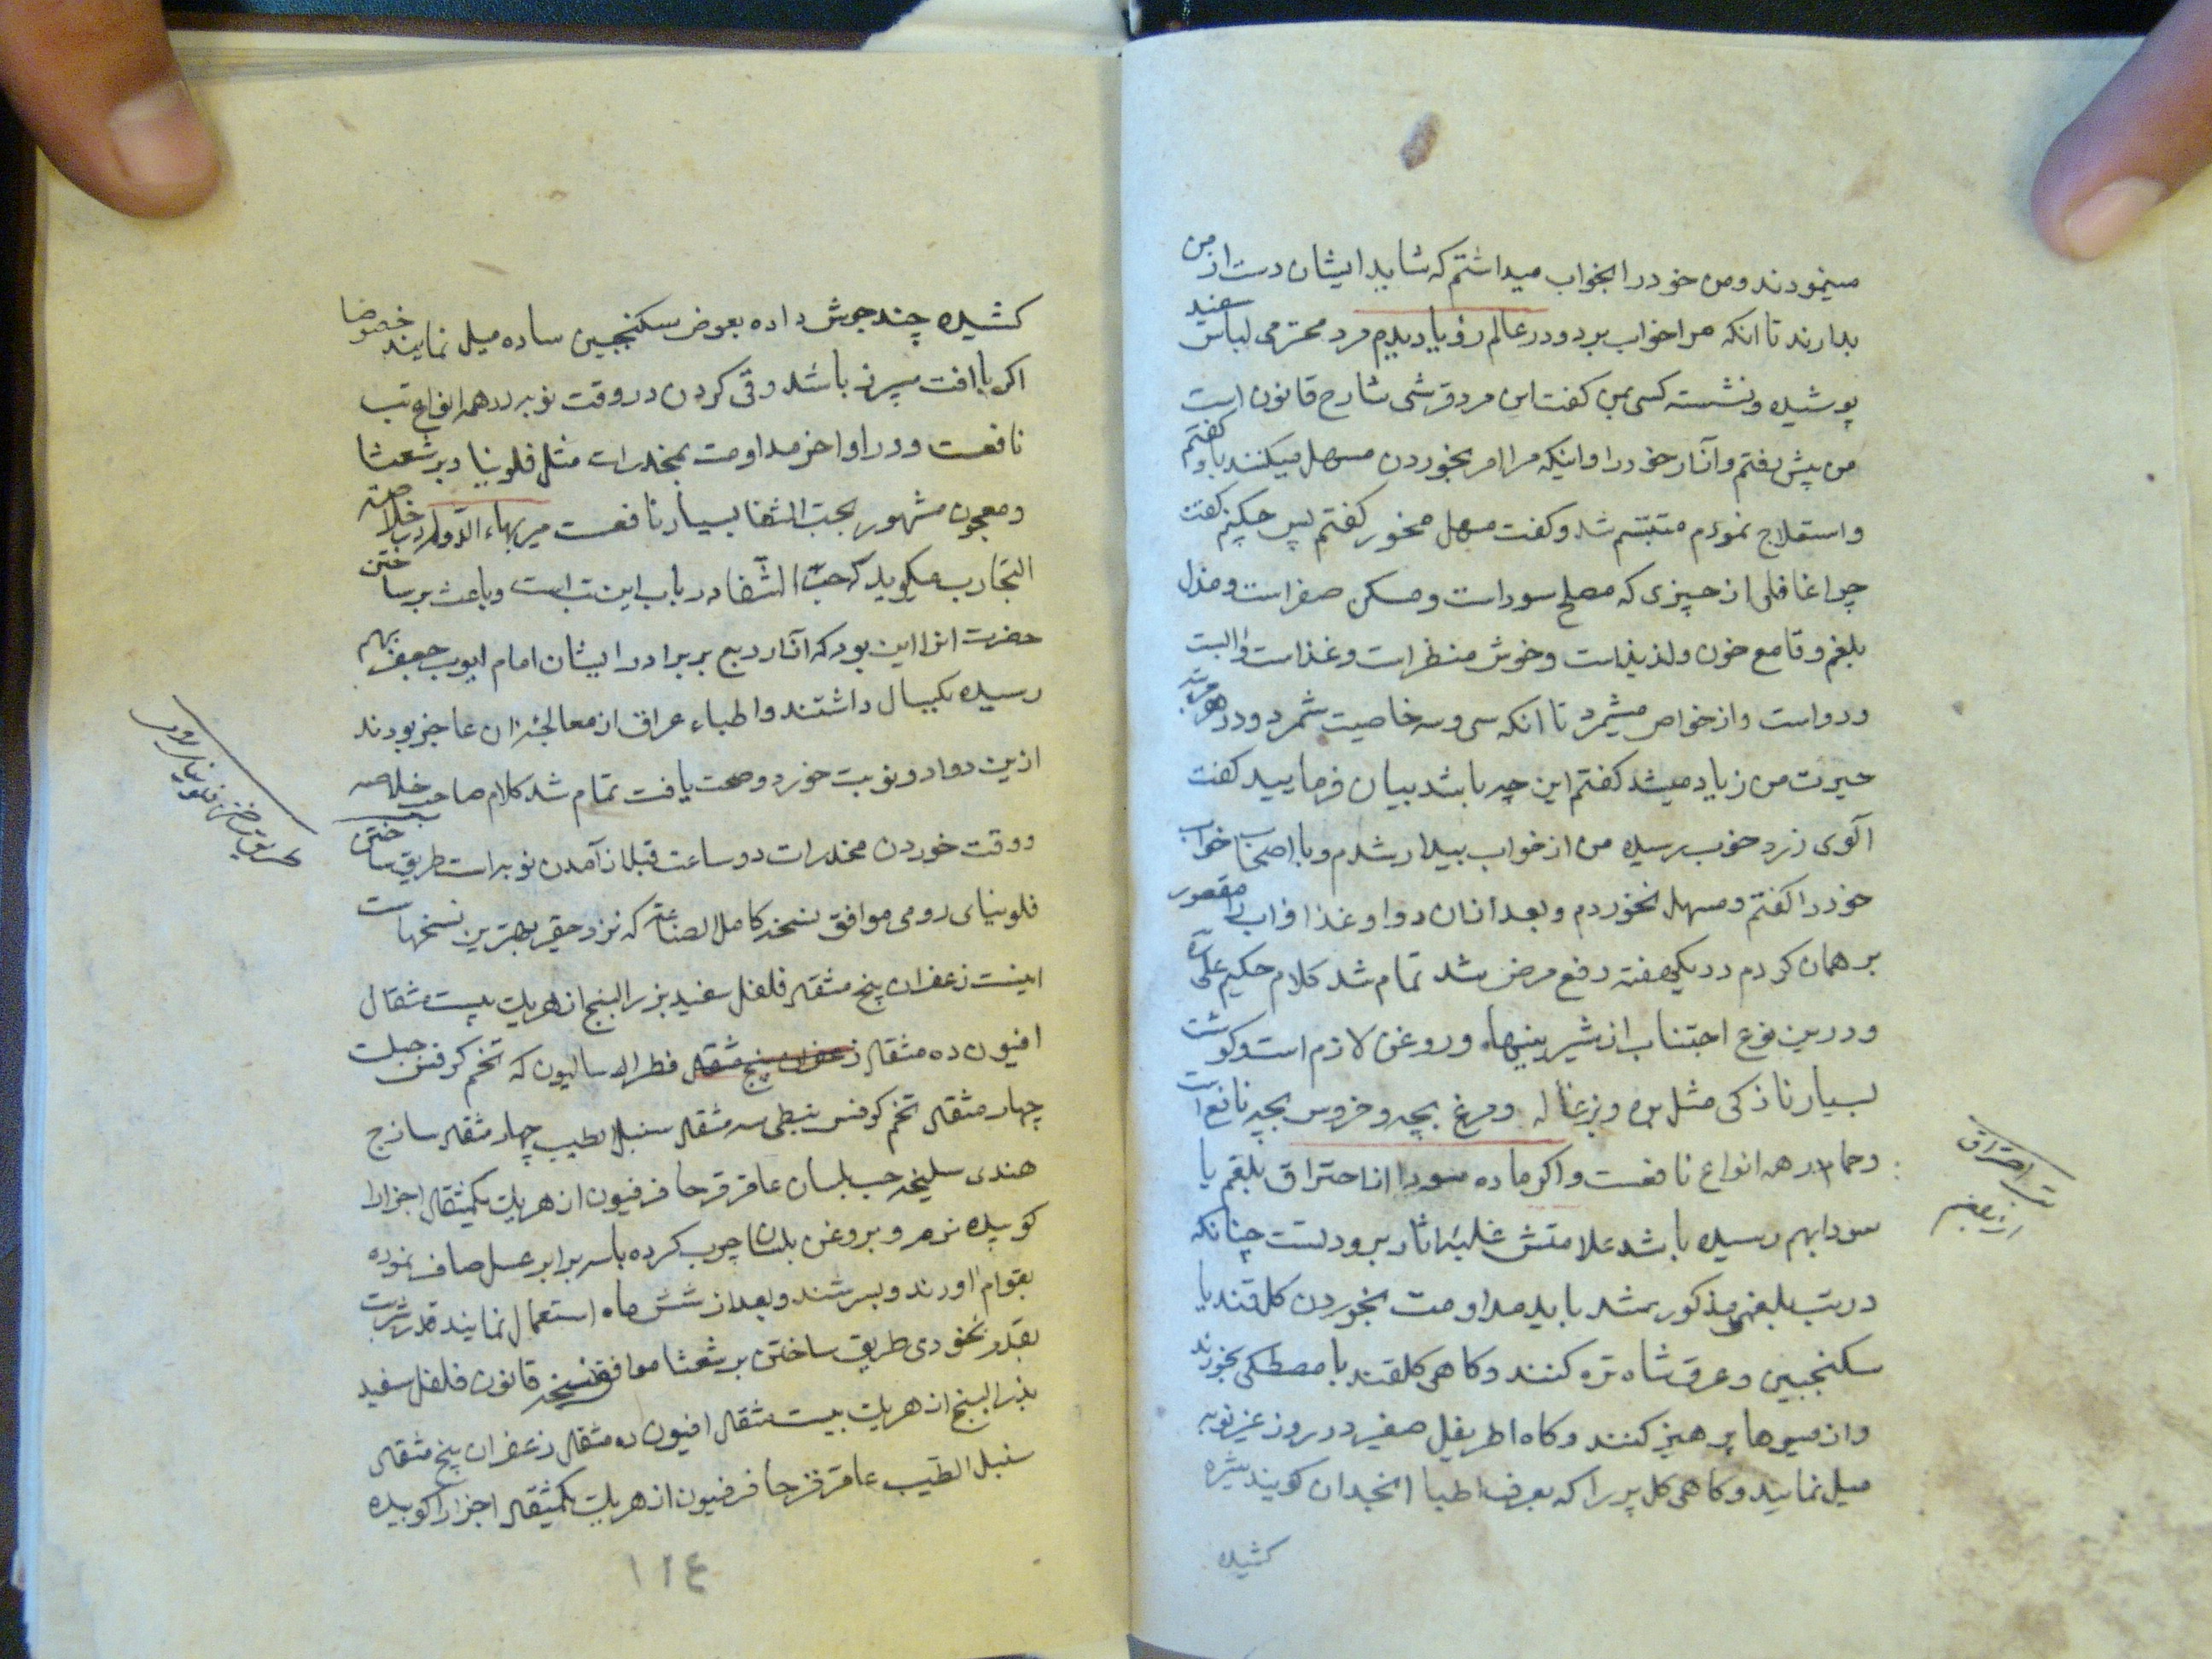 مینمودند و من خود را بخواب میداشتم که شاید ایشان دست از من
بدارند تا انکه مرا خواب برد و در عالم رؤیا دیدم مرد محترمی لباس سفید
پوشیده و نشسته کسی بمن کفت این مرد قرشی شارح قانون است
من پیش رفتم و آثار خود را و اینکه مرا امر بخوردن مسهل میکنند باو کفتم
و استعلاج نمودم متبسم شد و کفت مسهل مخور کفتم پس چکنم کفت
چرا غافلی از چیزی که مصلح سوداست و مسکن صفراست و مذل
بلغم و قامع خون و لذیذ است و خوش منظر است و غذاست و البت
و دواست و از خواص میشمرد تا انکه سی و سه خاصیت شمرد و در هر مرتبه
حیرت من زیاد میشد کفتم این چه باشد بیان فرمایید کفت
آلوی زرد خوب رسیده من از خواب بیدار شدم و با اصحاب خواب
خود را کفتم و مسهل نخوردم و بعد از ان دوا و غذا و اب را مقصور
بر همان کردم در یکهفته رفع مرض شد تمام شد کلام حکیم علی ره
و درین نوع اجتناب از شیرینیها و روغن لازم است و کوشت
بسیار نازکی مثل بره و بزغاله و مرغ بچه و خروس بچه نافع است
و حمام در همه انواع نافعست و اکر ماده سودا از احتراق بلغم یا
سودا بهم رسیده باشد علامتش غلبه اثار برودتست چنانکه
در تب بلغمی مذکور شد باید مداومت بخوردن کلقند یا
سکنجبین و عرق شاه تره کنند و کاهی کلقند با مصطکی بخورند
و از میوها پرهیز کنند و کاه اطریفل صغیر در روز غیر نوبه
میل نمایند و کاهی کل پر را که بعرف اطبا انجدان کویند شیره
کشیده
تب احتراق
کشیده چند جوش داده بعوض سکنجبین ساده میل نمایند خصوصا
اکر با افت سپرز باشد و قی کردن در وقت نوبه در همه انواع تب
نافعست و در اواخر مداومت بمخدرات مثل فلونیا و برشعثا
و معجون مشهور بحب الشفا بسیار نافعست میر بهاء الدوله در خلاصة
التجارب میکوید که حب الشفا در باب این تب است و باعث بر ساختن
حضرت انرا این بود که آثار ربع بر برادر ایشان امام ایوب جعفر بهم
رسیده یکسال داشتند و اطباء عراق از معالجه ان عاجز بودند
ازین دوا دو نوبت خورد و صحت یافت تمام شد کلام صاحب خلاصه
و وقت خوردن مخدرات دو ساعت قبل از آمدن نوبه است طریق ساختن
فلونیای رومی موافق نسخه کامل الصناعة که نزد حقیر بهترین نسخهاست
اینست زعفران پنج مثقال فلفل سفید بزر البنج از هریک بیست مثقال
افیون ده مثقال زعفران پنج مثقال فطر اسالیون که تخم کرفس جبلیست
چهار مثقال تخم کرفس نبطی سه مثقال سنبل الطیب چهار مثقال ساذج
هندی سلیخه حب بلسان عاقر قرحا فرفیون از هریک یکمثقال اجزا را
کوبیده نرم و بروغن بلسان چرب کرده با سه برابر عسل صاف نموده
بقوام اورند و بسرشند و بعد از شش ماه استعمال نمایند قدر شربت
بقدر نخودی طریق ساختن برشعثا موافق نسخه قانون فلفل سفید
بزر البنج از هریک بیست مثقال افیون ده مثقال زعفران پنج مثقال
سنبل الطیب عاقر قرحا فرفیون از هریک یکمثقال اجزا را کوبیده
١٢٤